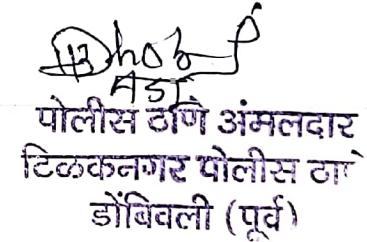 ASI
पोलीस ठाणे अंमलदार
टिळकनगर पोलीस ठाणे
डोंबिवली (पूर्व)